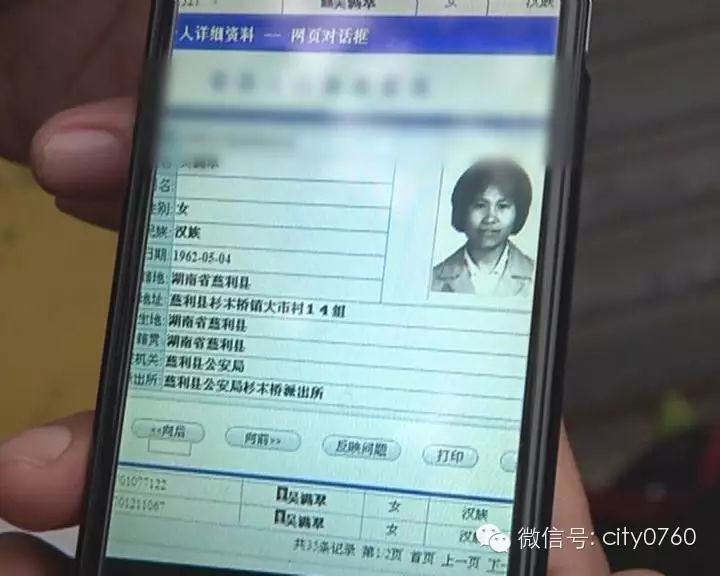 女
汉族
人详细资料 -- 网页对话框
名
性别: 女
民族: 汉族
日期: 1962-05-04
籍地: 湖南省慈利县
地址: 慈利县杉木桥镇大市村14组
生地: 湖南省慈利县
籍贯: 湖南省慈利县
机关: 慈利县公安局
出所: 慈利县公安局杉木桥派出所
<<向后 向前>> 反映问题 打印
701077122 女 汉族
701211067 女 汉
共35条记录 第1/2页 首页 上一页 下一
微信号: city0760